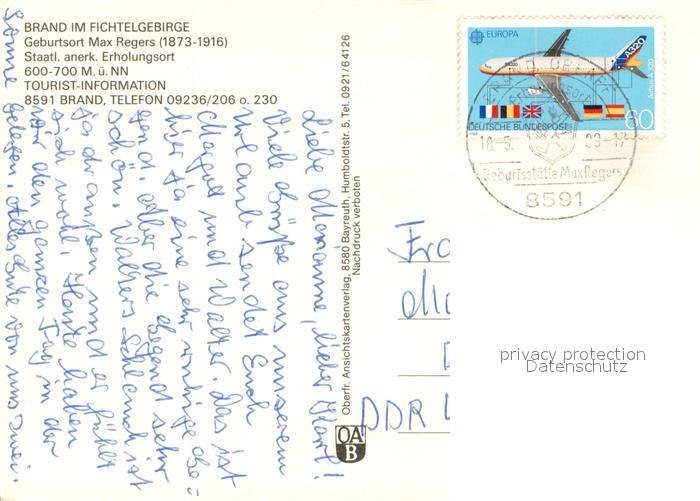 BRAND IM FICHTELGEBIRGE
Geburtsort Max Regers (1873-1916)
Staatl. anerk. Erholungsort
600-700 M. ü. NN
TOURIST-INFORMATION
8591 BRAND, TELEFON 09236/206 o. 230
Liebe Marianne, lieber Kurt!
Viele Grüße aus unserem
Urlaub sendet Euch
Margit und Walter. Das ist
hier ja eine sehr ruhige Ge=
gend. Aber die Gegend sehr
schön. Walters Schlauch ist
ja draußen und er fühlt
sich wohl. Heute haben
wir den ganzen Tag in der
Sonne gelegen. Alles Gute von uns zwei.
Oberfr. Ansichtskartenverlag, 8580 Bayreuth, Humboldtstr. 5, Tel. 0921/64126
Nachdruck verboten
OA
B
EUROPA
A320
Airbus A 320
DEUTSCHE BUNDESPOST
60
18.-5.
89-17
Geburtsstätte Max Regers
8591
DDR
privacy protection
Datenschutz